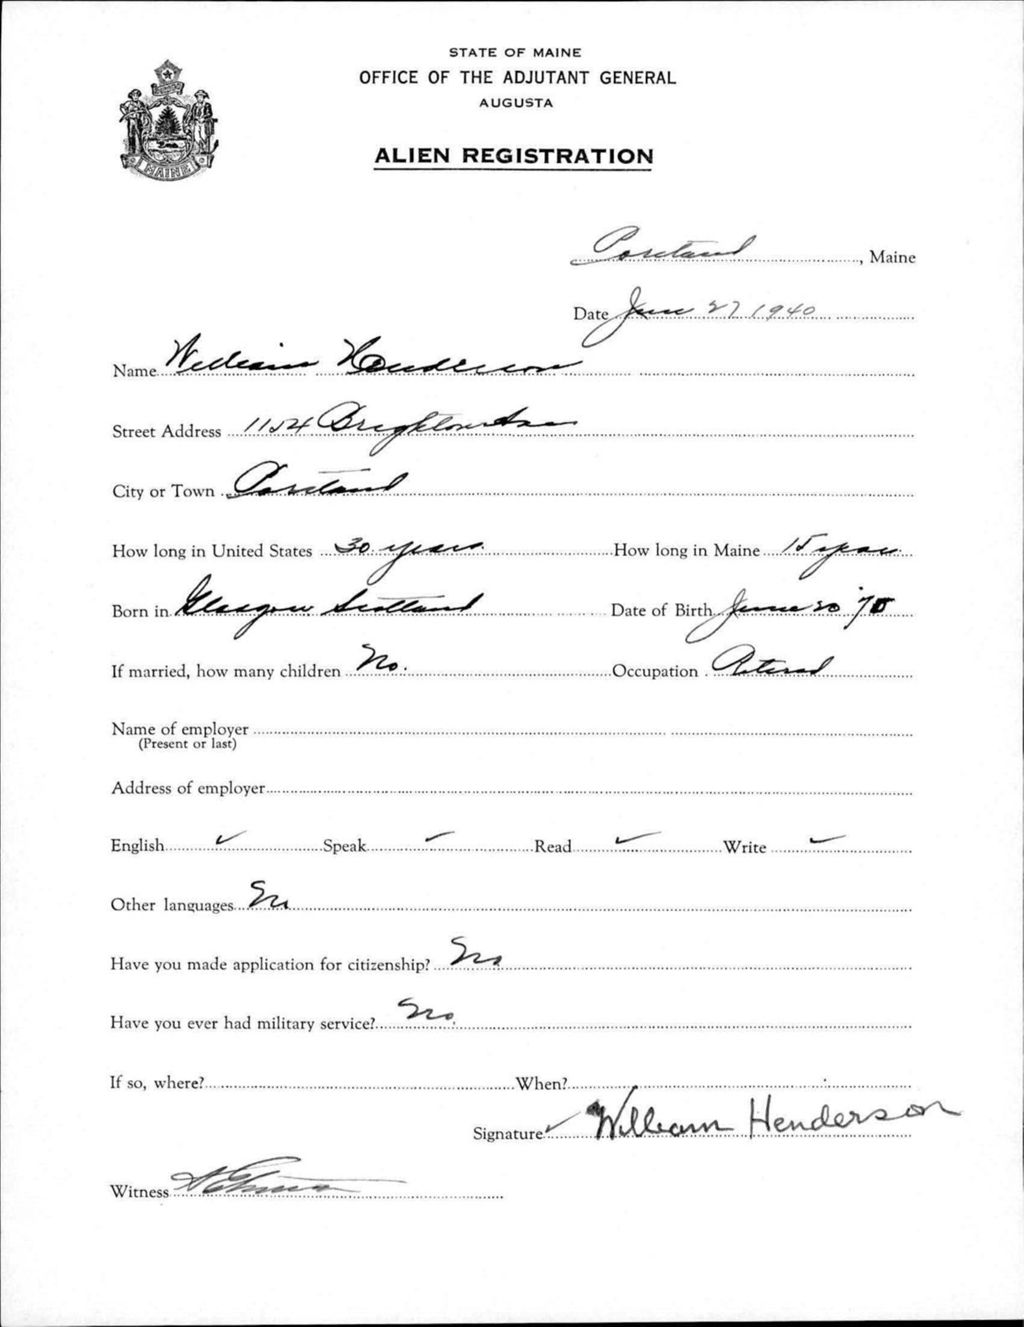 STATE OF MAINE
OFFICE OF THE ADJUTANT GENERAL
AUGUSTA
ALIEN REGISTRATION
MAINE
Portland, Maine
Date June 27 1940
Name William Henderson
Street Address 1154 Brighton Ave
City or Town Portland
How long in United States 30 years How long in Maine 15 years
Born in Glasgow Scotland Date of Birth June 20 '70
If married, how many children No. Occupation Retired
Name of employer
(Present or last)
Address of employer
English ✓ Speak ✓ Read ✓ Write ✓
Other languages No
Have you made application for citizenship? No
Have you ever had military service? No.
If so, where? When?
Signature ✓ William Henderson
Witness